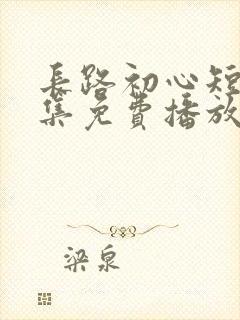 长路初心短
集免费播放
梁泉